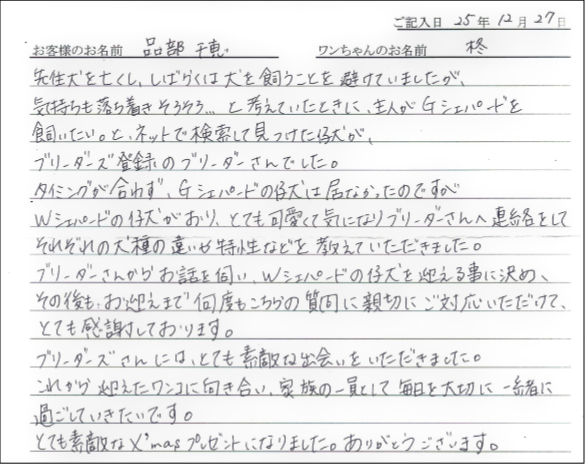 ご記入日 25年 12月 27日
お客様のお名前 品部 千恵 ワンちゃんのお名前 柊
先住犬を亡くし、しばらくは犬を飼うことを避けていましたが、
気持ちも落ち着きそろそろ…と考えていたときに、主人がGシェパードを
飼いたい。と、ネットで検索して見つけた仔犬が、
ブリーダーズ登録のブリーダーさんでした。
タイミングが合わず、Gシェパードの仔犬は居なかったのですが
Wシェパードの仔犬がおり、とても可愛くて気になりブリーダーさんへ連絡をして
それぞれの犬種の違いや特性などを教えていただきました。
ブリーダーさんからお話を伺い、Wシェパードの仔犬を迎える事に決め、
その後も、お迎えまで何度もこちらの質問に親切にご対応いただけて、
とても感謝しております。
ブリーダーズさんには、とても素敵な出会いをいただきました。
これから迎えたワンコに向き合い、家族の一員として毎日を大切に一緒に
過ごしていきたいです。
とても素敵なX'masプレゼントになりました。ありがとうございます。